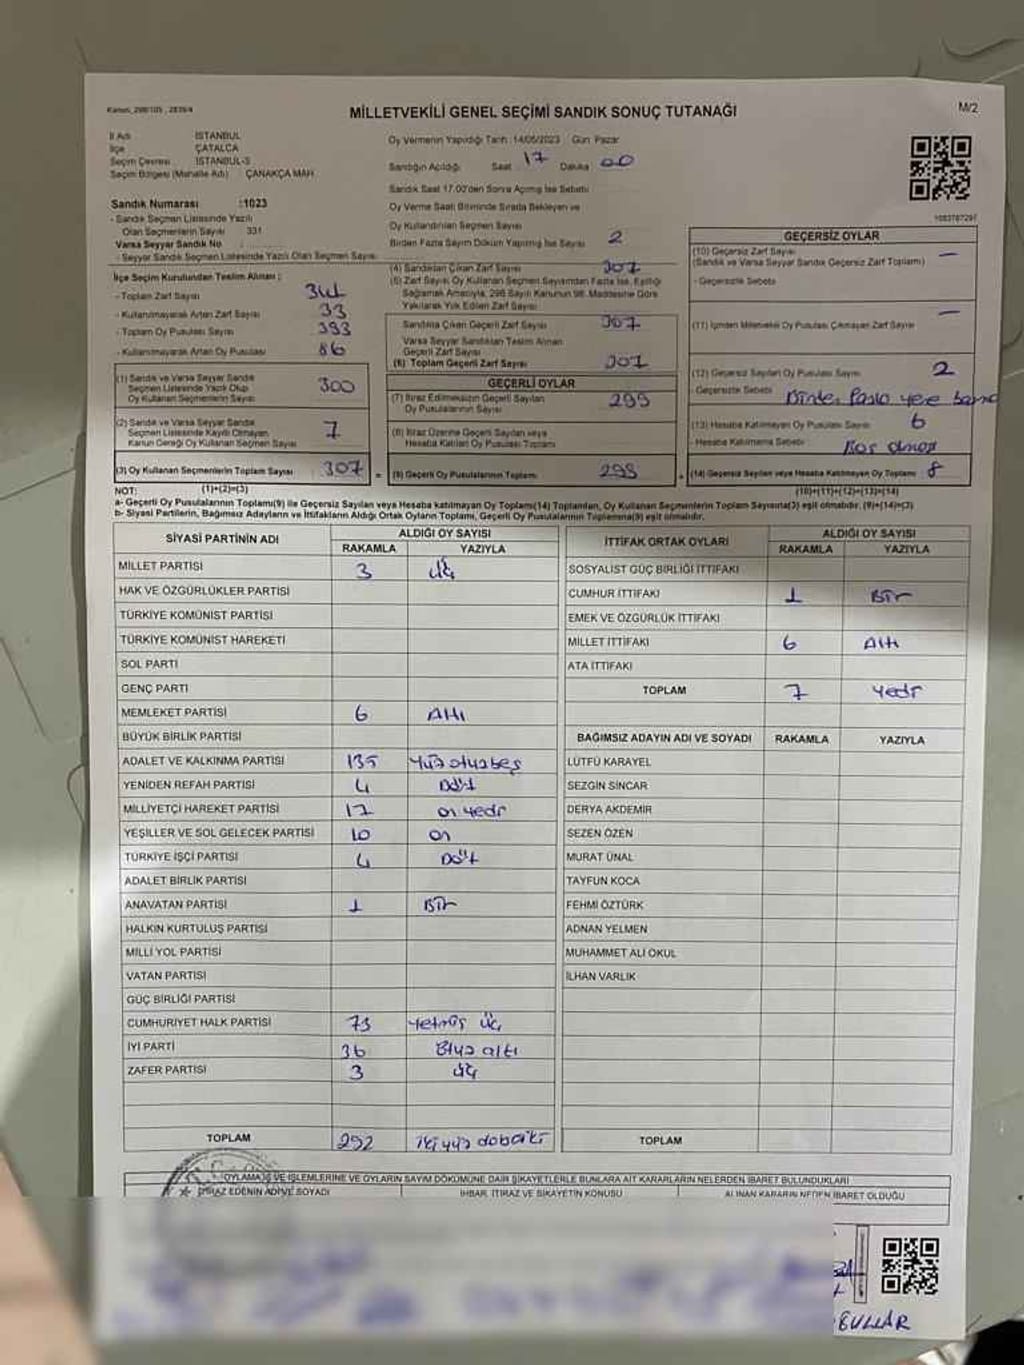 Kanun, 298/105, 2839/4
MİLLETVEKİLİ GENEL SEÇİMİ SANDIK SONUÇ TUTANAĞI
M/2
İl Adı İSTANBUL
İlçe ÇATALCA
Seçim Çevresi İSTANBUL-3
Seçim Bölgesi (Mahalle Adı) ÇANAKÇA MAH.
Sandık Numarası :1023
- Sandık Seçmen Listesinde Yazılı
Olan Seçmenlerin Sayısı 331
Varsa Seyyar Sandık No
- Seyyar Sandık Seçmen Listesinde Yazılı Olan Seçmen Sayısı
Oy Vermenin Yapıldığı Tarih: 14/05/2023 Gün: Pazar
Sandığın Açıldığı Saat 17 Dakika 00
Sandık Saat 17.00'den Sonra Açılmış İse Sebebi
Oy Verme Saati Bitiminde Sırada Bekleyen ve
Oy Kullandırılan Seçmen Sayısı
Birden Fazla Sayım Döküm Yapılmış İse Sayısı 2
İlçe Seçim Kurulundan Teslim Alınan :
- Toplam Zarf Sayısı 341
- Kullanılmayarak Artan Zarf Sayısı 33
- Toplam Oy Pusulası Sayısı 393
- Kullanılmayarak Artan Oy Pusulası 86
(1) Sandık ve Varsa Seyyar Sandık
Seçmen Listesinde Yazılı Olup
Oy Kullanan Seçmenlerin Sayısı 300
(2) Sandık ve Varsa Seyyar Sandık
Seçmen Listesinde Kayıtlı Olmayan
Kanun Gereği Oy Kullanan Seçmen Sayısı 7
(3) Oy Kullanan Seçmenlerin Toplam Sayısı 307 =
(1)+(2)=(3)
(4) Sandıktan Çıkan Zarf Sayısı 307
(5) Zarf Sayısı Oy Kullanan Seçmen Sayısından Fazla İse, Eşitliği
Sağlamak Amacıyla, 298 Sayılı Kanunun 98. Maddesine Göre
Yakılarak Yok Edilen Zarf Sayısı
Sandıkta Çıkan Geçerli Zarf Sayısı 307
Varsa Seyyar Sandıktan Teslim Alınan
Geçerli Zarf Sayısı
(6) Toplam Geçerli Zarf Sayısı 307
GEÇERLİ OYLAR
(7) İtiraz Edilmeksizin Geçerli Sayılan
Oy Pusulalarının Sayısı 299
(8) İtiraz Üzerine Geçerli Sayılan veya
Hesaba Katılan Oy Pusulaları Toplamı
(9) Geçerli Oy Pusulalarının Toplamı 299 +
1083787297
GEÇERSİZ OYLAR
(10) Geçersiz Zarf Sayısı —
(Sandık ve Varsa Seyyar Sandık Geçersiz Zarf Toplamı)
- Geçersizlik Sebebi
(11) İçinden Milletvekili Oy Pusulası Çıkmayan Zarf Sayısı —
(12) Geçersiz Sayılan Oy Pusulası Sayısı 2
- Geçersizlik Sebebi Birden Fazla yere basma
(13) Hesaba Katılmayan Oy Pusulası Sayısı 6
- Hesaba Katılmama Sebebi Boş olması
(14) Geçersiz Sayılan veya Hesaba Katılmayan Oy Toplamı 8
(10)+(11)+(12)+(13)=(14)
NOT:
a- Geçerli Oy Pusulalarının Toplamı(9) ile Geçersiz Sayılan veya Hesaba katılmayan Oy Toplamı(14) Toplamları, Oy Kullanan Seçmenlerin Toplam Sayısına(3) eşit olmalıdır. (9)+(14)=(3)
b- Siyasi Partilerin, Bağımsız Adayların ve İttifakların Aldığı Ortak Oyların Toplamı, Geçerli Oy Pusulalarının Toplamına(9) eşit olmalıdır.
SİYASİ PARTİNİN ADI ALDIĞI OY SAYISI
RAKAMLA YAZIYLA
MİLLET PARTİSİ 3 üç
HAK VE ÖZGÜRLÜKLER PARTİSİ
TÜRKİYE KOMÜNİST PARTİSİ
TÜRKİYE KOMÜNİST HAREKETİ
SOL PARTİ
GENÇ PARTİ
MEMLEKET PARTİSİ 6 Altı
BÜYÜK BİRLİK PARTİSİ
ADALET VE KALKINMA PARTİSİ 135 Yüz otuzbeş
YENİDEN REFAH PARTİSİ 4 Dört
MİLLİYETÇİ HAREKET PARTİSİ 17 on yedi
YEŞİLLER VE SOL GELECEK PARTİSİ 10 on
TÜRKİYE İŞÇİ PARTİSİ 4 Dört
ADALET BİRLİK PARTİSİ
ANAVATAN PARTİSİ 1 Bir
HALKIN KURTULUŞ PARTİSİ
MİLLİ YOL PARTİSİ
VATAN PARTİSİ
GÜÇ BİRLİĞİ PARTİSİ
CUMHURİYET HALK PARTİSİ 73 Yetmiş üç
İYİ PARTİ 36 Otuz altı
ZAFER PARTİSİ 3 üç
TOPLAM 292 iki yüz doksan iki
İTTİFAK ORTAK OYLARI ALDIĞI OY SAYISI
RAKAMLA YAZIYLA
SOSYALİST GÜÇ BİRLİĞİ İTTİFAKI
CUMHUR İTTİFAKI 1 Bir
EMEK VE ÖZGÜRLÜK İTTİFAKI
MİLLET İTTİFAKI 6 Altı
ATA İTTİFAKI
TOPLAM 7 Yedi
BAĞIMSIZ ADAYIN ADI VE SOYADI RAKAMLA YAZIYLA
LÜTFÜ KARAYEL
SEZGİN SİNCAR
DERYA AKDEMİR
SEZEN ÖZEN
MURAT ÜNAL
TAYFUN KOCA
FEHMİ ÖZTÜRK
ADNAN YELMEN
MUHAMMET ALİ OKUL
İLHAN VARLIK
TOPLAM
OYLAMA İŞ VE İŞLEMLERİNE VE OYLARIN SAYIM DÖKÜMÜNE DAİR ŞİKAYETLERLE BUNLARA AİT KARARLARIN NELERDEN İBARET BULUNDUKLARI
İTİRAZ EDENİN ADI VE SOYADI İHBAR, İTİRAZ VE ŞİKAYETİN KONUSU ALINAN KARARIN NEDEN İBARET OLDUĞU